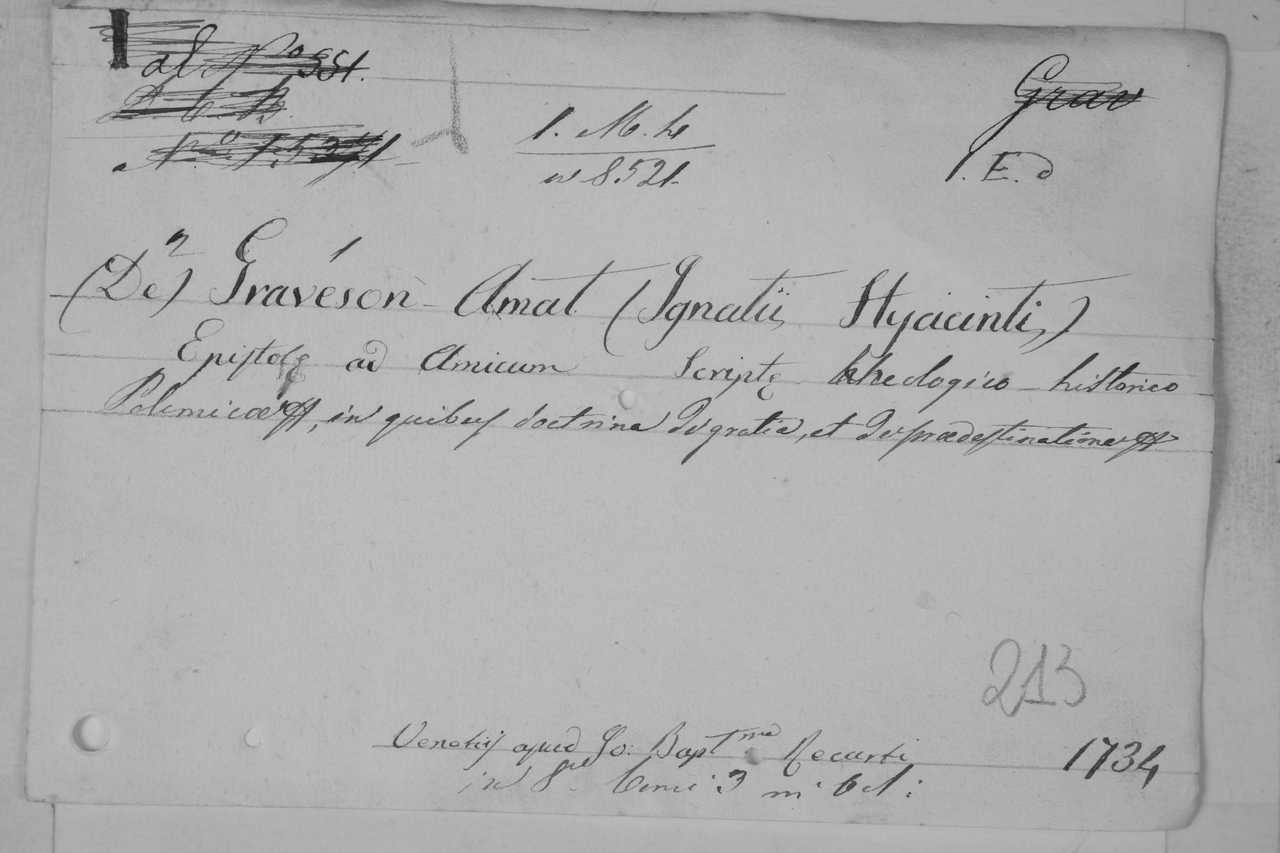 al Nº 551.
Nº 1.5271
1. M. h
8.521.
Grav
1. E. d
(De) Graveson Amat (Ignatii Hyacinti)
Epistolę ad Amicum Scriptę theologico historico
Polemicæ, in quibus doctrina de gratia, et de prædestinatione
213
Venetiis apud Jo: Bapt.ma Recurti 1734
in 8.vo tomi 3